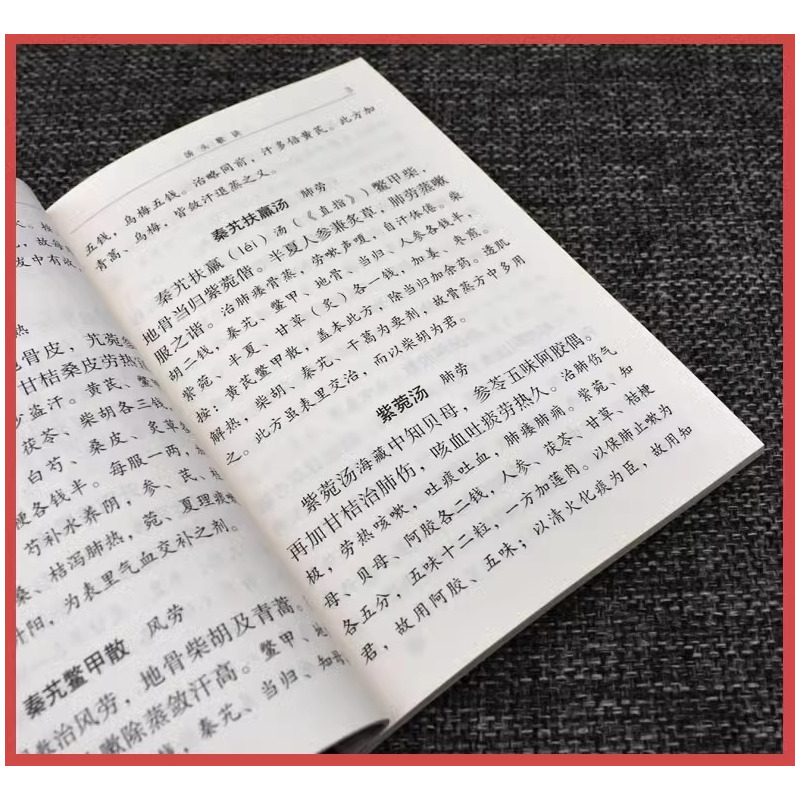 故每
友中有收
地骨皮，艽菀
甘桔桑皮劳热
少盗汗。黄芪、鳖
茯苓、柴胡各三钱
白芍、桑皮、炙草
各钱半。每服一两，
芍补水养阴，参、芪、桂
菀、夏理痰嗽
桑、桔泻肺热，
升阳，为表里气血交补之剂。
秦艽鳖甲散 风劳
治风劳，地骨柴胡及青蒿。
嗽除蒸敛汗高。鳖甲、地
秦艽、当归、知母
汤头歌诀
五钱，乌梅五钱。治略同前，汗多倍黄芪。此方加
青蒿、乌梅，皆敛汗退蒸之义。
秦艽扶羸汤 肺劳
秦艽扶羸（léi）汤（《直指》）鳖甲柴，
地骨当归紫菀偕。半夏人参兼炙草，肺劳蒸嗽
服之谐。治肺痿骨蒸，劳嗽声嗄，自汗体倦。柴
胡二钱，秦艽、鳖甲、地骨、当归、人参各钱半，
紫菀、半夏、甘草（炙）各一钱，加姜、枣煎。
按：黄芪鳖甲散，盖本此方，除当归加余药。透肌
解热，柴胡、秦艽、干葛为要剂，故骨蒸方中多用
之。此方虽表里交治，而以柴胡为君。
紫菀汤 肺劳
紫菀汤海藏中知贝母，参苓五味阿胶偶。
再加甘桔治肺伤，咳血吐痰劳热久。治肺伤气
极，劳热咳嗽，吐痰吐血，肺痿肺痈。紫菀、知
母、贝母、阿胶各二钱，人参、茯苓、甘草、桔梗
各五分，五味十二粒，一方加莲肉。以保肺止嗽为
君，故用阿胶、五味；以清火化痰为臣，故用知